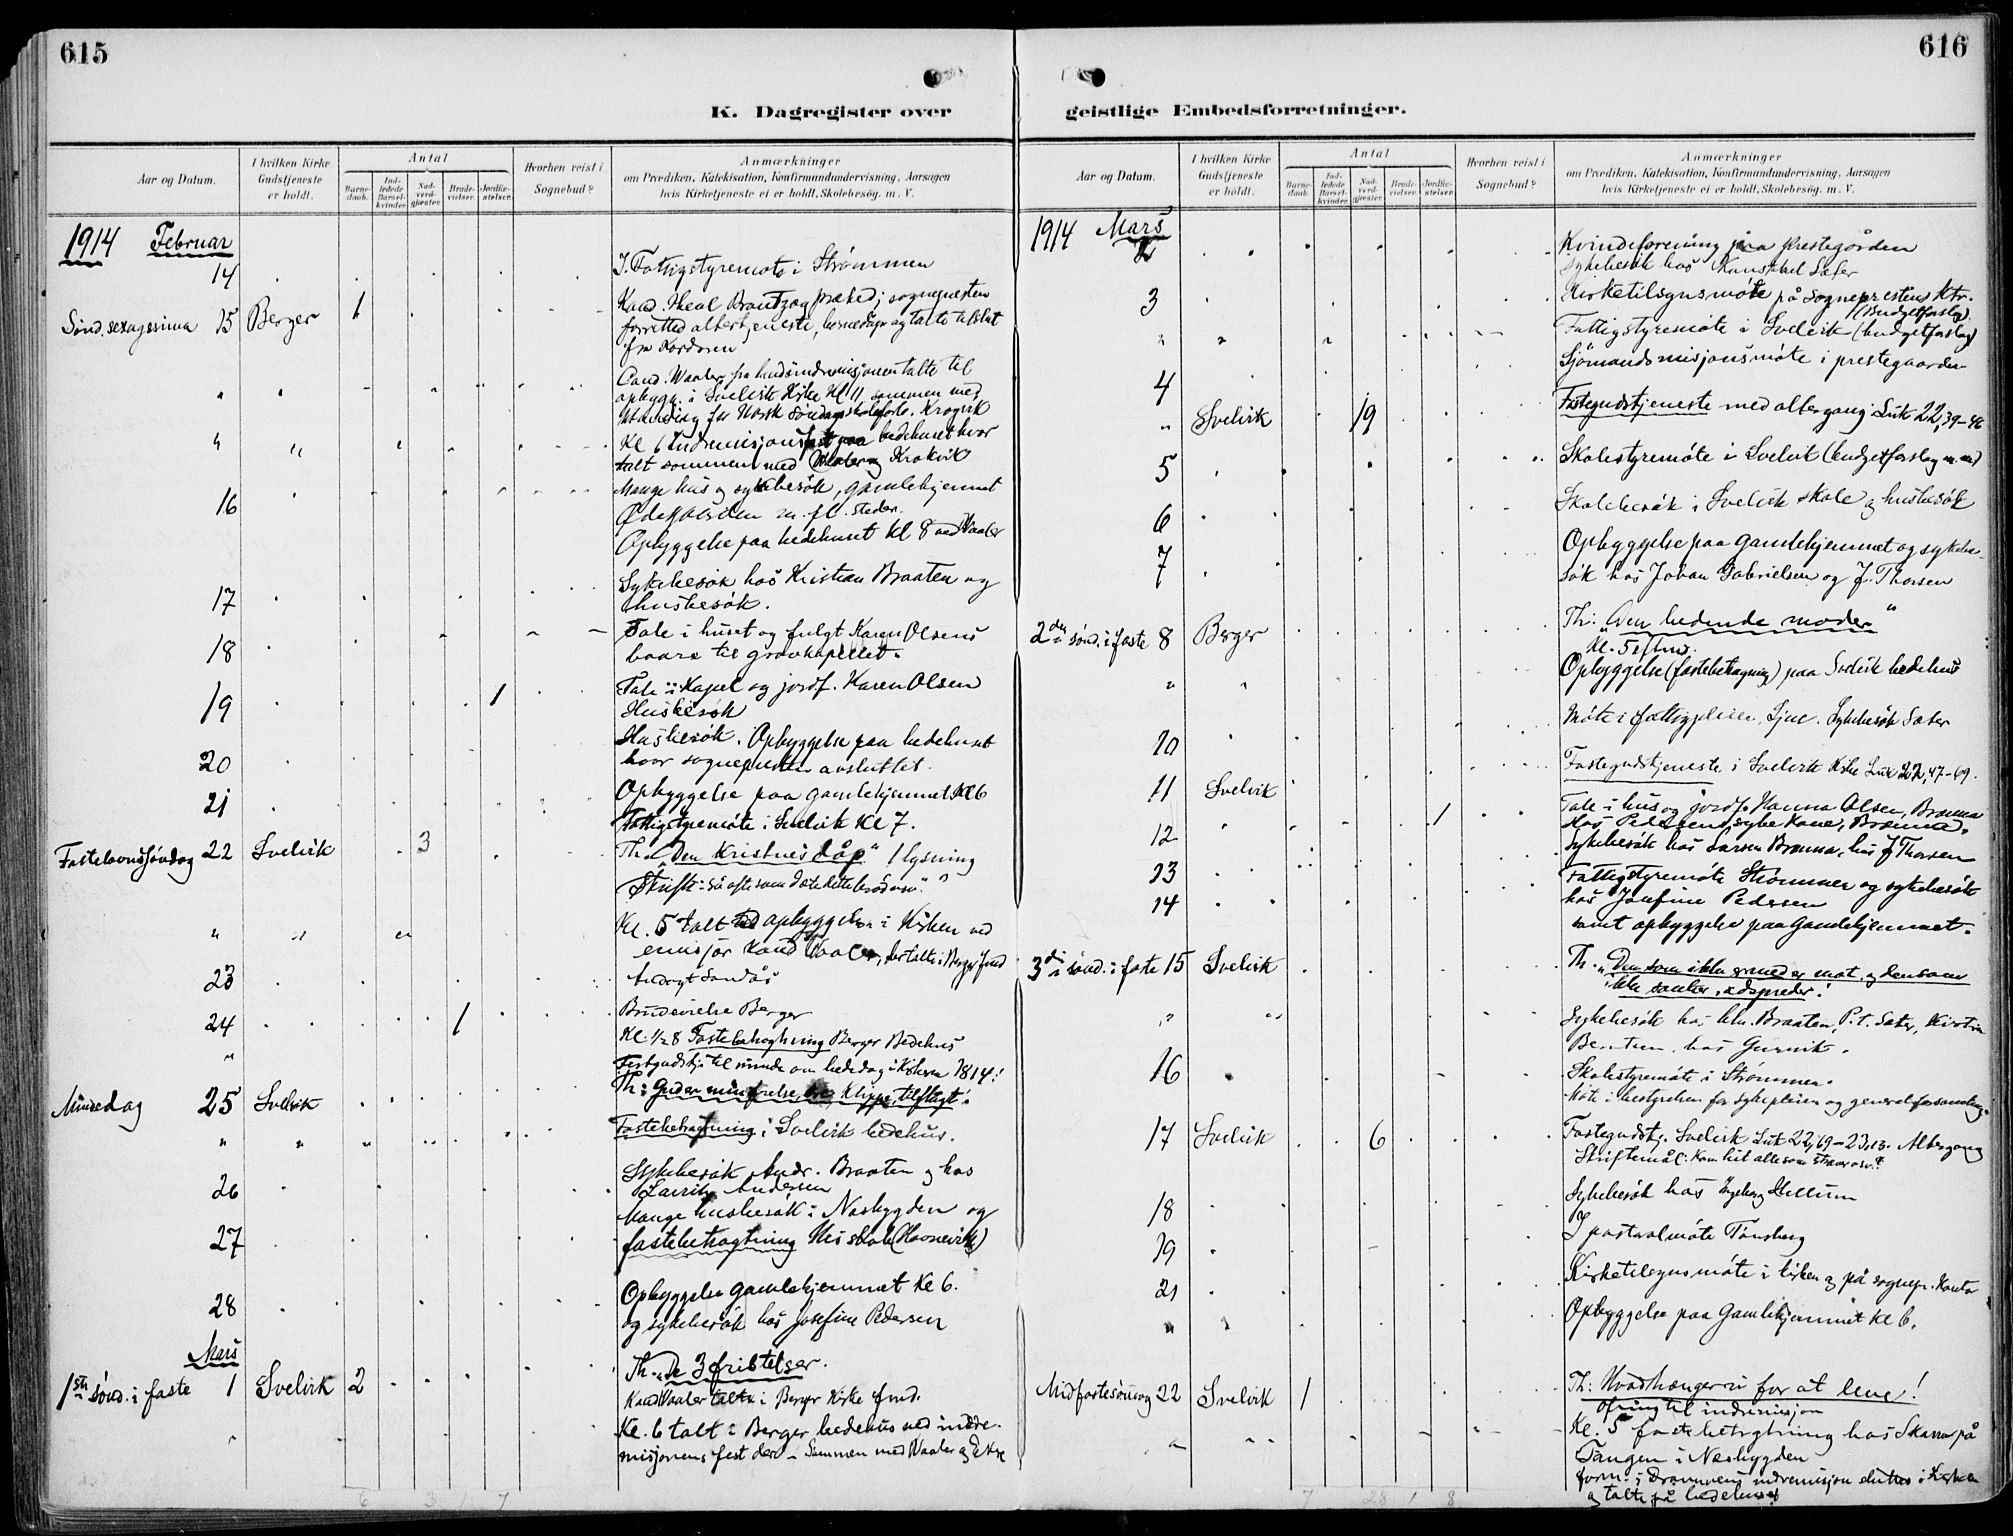 615
K. Dagregister over
Aar og Datum.
I hvilken Kirke Gudstjeneste er holdt.
Antal
Barnedaab.
Indledede Barselkvinder
Nadverdgjæster
Brudevielser
Jordfæstelser
Hvorhen reist i Sognebud?
Anmærkninger
om Prædiken, Katekisation, Konfirmandundervisning, Aarsagen
hvis Kirketjeneste ei er holdt, Skolebesøg. m. V.
1914 Februar
14 I. Fattigstyremøte i Strømmen
Sønd. sexagesima 15 Berger 1
altertjeneste, og talte tilslut
fra Kordøren
Cand. Waaler talte til
opbygg. i Svelvik Kirke Kl 11 sammen med
for Norsk Søndagsskoleforb.
Kl 6 Indremisjonsfest paa bedehuset hvor
talt sammen med Waaler og Krokvik
16 Mange hus og sykebesøk, gamlehjemmet
m. fl. steder.
Opbyggelse paa bedehuset Kl 8 ved Waaler
17 Sykebesøk hos Kristian Braaten og
husbesøk.
18 Tale i huset og fulgt Karen Olsens
baare til gravkapellet.
19 1 Tale i Kapel og jordf. Karen Olsen
Husbesøk
20 Husbesøk. Opbyggelse paa bedehuset
hvor sognepresten avsluttet.
21 Opbyggelse paa gamlehjemmet Kl 6
Fattigstyremøte i Svelvik Kl 7.
Fastelavnssøndag 22 Svelvik 3 Th. "Den Kristnes dåp" 1 lysning
Skrifte: så ofte som
Kl. 5 talt ved opbyggelse i Kirken ved
emisjær Kand Waaler, der talte i Berger
23
24 1 Brudevielse Berger
Kl. ½ 8 Fastebetragtning Berger Bedehus
Mindedag 25 Svelvik Festgudstj. til minde om bededag i Kirken 1814!
Th: Gud er min frelse, Klippe, tilflugt.
Fastebetragtning i Svelvik bedehus.
26 Sykebesøk Andr. Braaten og hos
Lauritz Andersen
27 Mange husbesøk i Nesbygden og
fastebetragtning
28 Opbyggelse Gamlehjemmet Kl 6.
og sykebesøk hos Josefine Pedersen
Mars
1ste sønd. i faste 1 Svelvik 2 Th. "De 3 fristelser.
Kand Waaler talte i Berger Kirke fmd.
Kl. 6 talt i Berger bedehus ved indre-
misjonens fest der – Sammen med Waaler og
6 3 7
616
geistlige Embedsforretninger.
Aar og Datum.
I hvilken Kirke Gudstjeneste er holdt.
Antal
Barnedaab.
Indledede Barselkvinder
Nadverdgjæster
Brudevielser
Jordfæstelser
Hvorhen reist i Sognebud?
Anmærkninger
om Prædiken, Katekisation, Konfirmandundervisning, Aarsagen
hvis Kirketjeneste ei er holdt, Skolebesøg. m. V.
1914 Mars
2 Kvindeforening paa Prestegården
sykebesøk hos Sæter
3 Kirketilsynsmøte på Sogneprestens Ktr.
(Budgetforslag)
Fattigstyremøte i Svelvik (budgetforslag)
4 Sjømandsmisjonsmøte i prestegaarden
Svelvik 19 Fastegudstjeneste med altergang Luk 22, 39-46
5 Skolestyremøte i Svelvik (budgetforslag m.m)
6 Skolebesøk i Svelvik skole og husbesøk
7 Opbyggelse paa Gamlehjemmet og sykebe-
søk hos Johan Gabrielsen og J. Thorsen
2den sønd. i faste 8 Berger Th: "Den bedende moder"
Kl. 5
Opbyggelse (fastebetragtning) paa Svelvik bedehus
10 Møte i fattigpleien, Sykebesøk Sæter
11 Svelvik Fastegudstjeneste i Svelvik Kirke Luk 22, 47-69.
12 1 Tale i hus og jordf. Hanna Olsen, Brenna
Hos Pedersens syke Kone, Brenna.
13 Sykebesøk hos Larsen Brenna, hus J Thorsen
14 Fattigstyremøte Strømmen og sykebesøk
hos Josefine Pedersen
samt opbyggelse paa Gamlehjemmet.
3die sønd. i faste 15 Svelvik Th. "Den som ikke er med er mot, og den som
ikke sanker, adspreder.
Sykebesøk hos Braaten, P. t. Sæter,
Berntsen, hos
16 Skolestyremøte i Strømmen.
Møte i bestyrelsen for sykepleien og generalforsamling
17 Svelvik 6 Fastegudstj. Svelvik Luk 22, 69-23,13. Altergang
Skriftemål: Kom hit alle som
18 Sykebesøk hos Ingeborg Hellum
19 I pastoralmøte Tønsberg
21 Kirketilsynsmøte i kirken og på sognepr. Kontor
Opbyggelse paa Gamlehjemmet Kl 6.
Midfastesøndag 22 Svelvik 1 Th: Hvad trænger vi for at leve!
Ofring til indremisjon
Kl. 5 fastebetragtning hos Skarra på
Tangen i Nesbygden
form. i Drammens indremisjon i Kirken
og talte på bedehuset
7 28 1 8